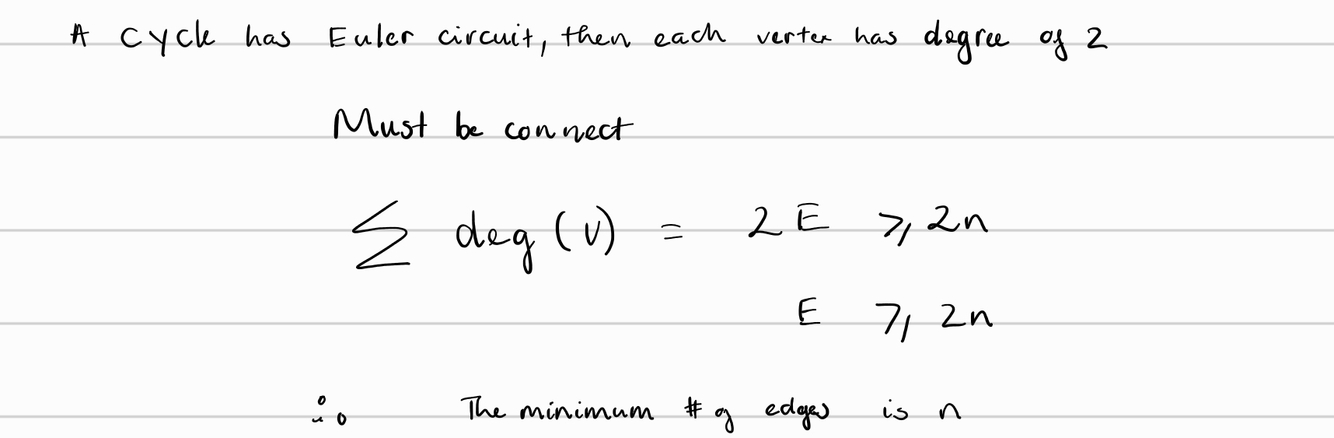 A cycle has Euler circuit, then each vertex has degree of 2
Must be connect
∑ deg (v) = 2E ≥ 2n
E ≥ 2n
∴ The minimum # of edges is n